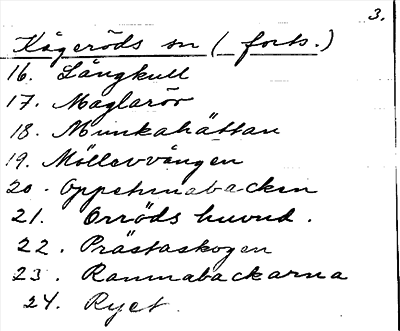 3.
Kågeröds sn (forts.)
16. Långkull
17. Maglaröv
18. Munkahättan
19. Möllevvången
20. Oppetunabacken
21. Orröds huvud.
22. Prästaskogen
23. Rannabackarna
24. Ryet.